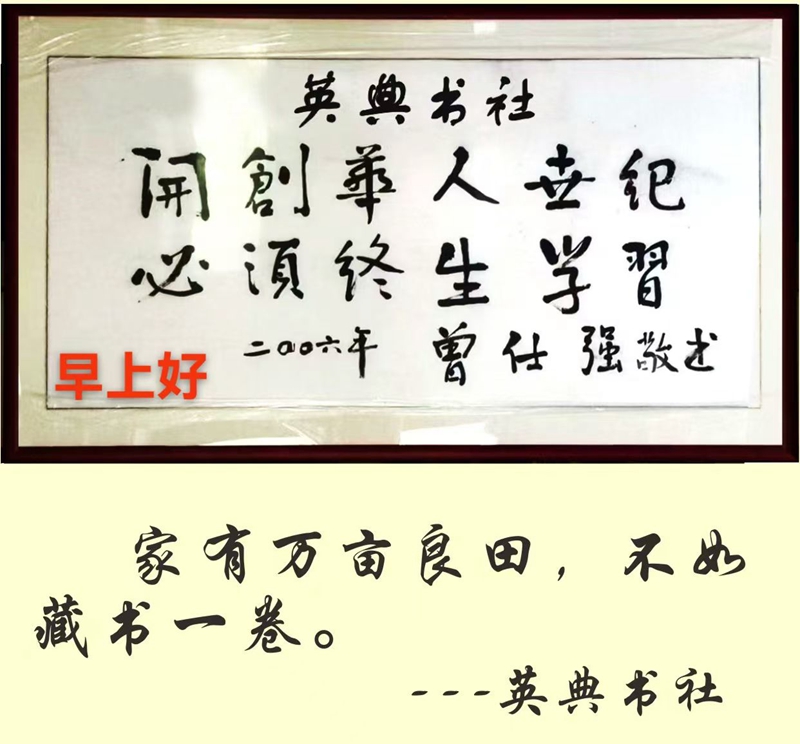 英典书社
開創華人世紀
必須终生学習
二00六年 曾仕强敬书
早上好
家有万亩良田，不如
藏书一卷。
---英典书社